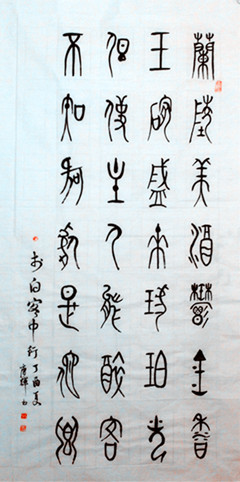 蘭陵美酒鬱金香
玉碗盛來琥珀光
但使主人能醉客
不知何處是他鄉
李白客中行 丁酉夏